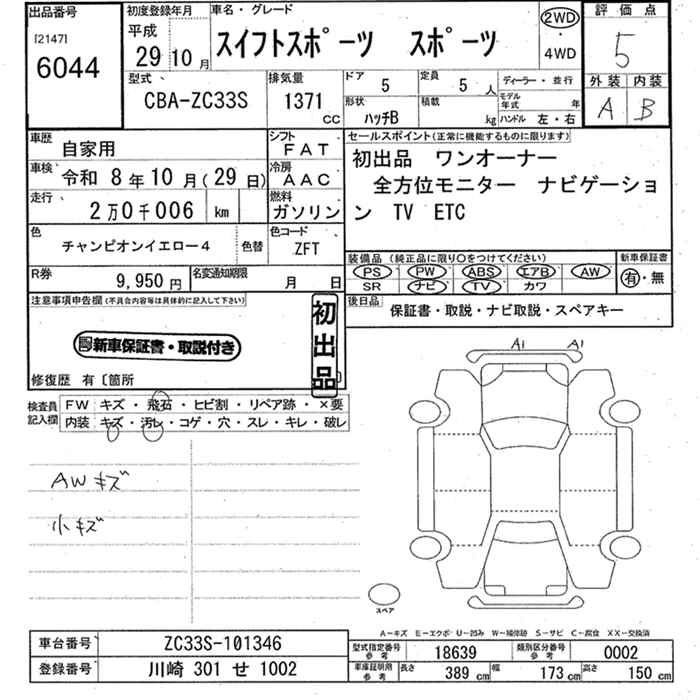 出品番号
[2147]
6044
初度登録年月
平成
29 10 月
車名・グレード
スイフトスポーツ スポーツ
2WD
・
4WD
評価点
5
型式
CBA-ZC33S
排気量
1371
CC
ドア
5
定員
5 人
形状
ハッチB
積載
kg
ディーラー・並行
モデル年式 年
ハンドル 左・右
外装 内装
A B
車歴
自家用
シフト
FAT
車検 令和 8 年 10 月 (29 日)
冷房
AAC
走行
2 万 0 千 006 km
燃料
ガソリン
色
チャンピオンイエロー4
色替
色コード
ZFT
R券
9,950 円
名変通知期限
月 日
セールスポイント(正常に機能するものに限ります)
初出品 ワンオーナー
全方位モニター ナビゲーショ
ン TV ETC
装備品 (純正品に限り○をつけてください)
PS PW ABS エアB AW
SR ナビ TV カワ
新車保証書
有・無
後日品
保証書・取説・ナビ取説・スペアキー
注意事項申告欄(不具合内容等は具体的に記入して下さい)
新車保証書・取説付き
初出品
修復歴 有〔箇所
検査員記入欄
FW キズ・飛石・ヒビ割・リペア跡・×要
内装 キズ・汚レ・コゲ・穴・スレ・キレ・破レ
AWキズ
小キズ
A1 A1
スペア
A-キズ E-エクボ U-凹み W-補修跡 S-サビ C-腐食 XX-交換済
車台番号 ZC33S-101346
登録番号 川崎 301 せ 1002
型式指定番号
参考
18639
類別区分番号
参考
0002
車庫証明用
参考
長さ 389 cm 幅 173 cm 高さ 150 cm